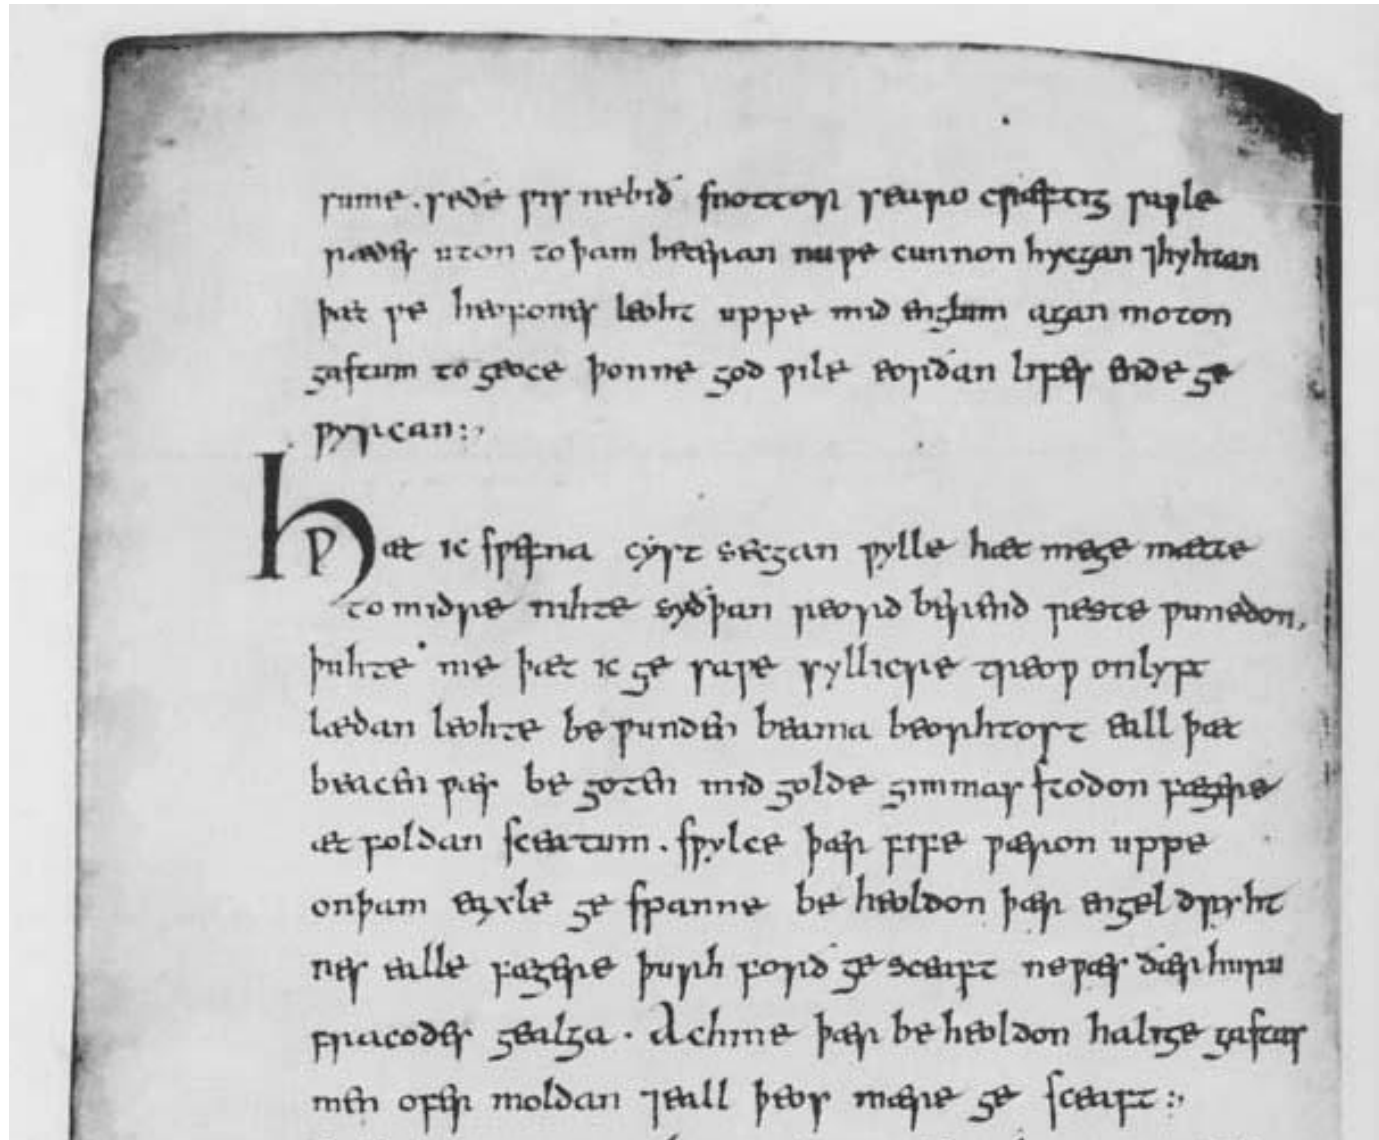 sume . seðe ƿis nebið snottor searo cræftig saƿle
rædes uton to þam beteran nuƿe cunnon hycgan ⁊hyhtan
þæt ƿe heofones leoht uppe mid englum agan moton
gastum to geoce þonne god ƿile eorðan lifes ende ge
ƿyrcan:,
HǷæt ic sƿefna cyst secgan ƿylle hæt mege mætte
to midre nihte sydþan reord berend reste ƿunedon,
þuhte me þæt ic ge saƿe syllicre treoƿ onlyft
lædan leohte be ƿunden beama beorhtost eall þæt
beacen ƿæs be goten mid golde gimmas stodon fægere
æt foldan sceatum . sƿylce þær fife ƿæron uppe
onþam eaxle ge spanne be heoldon þær engel dryht
nes ealle fægere þurh forð ge sceaft neƿæs ðær huru
fracodes gealga . Achine þær be heoldon halige gastas
men ofer moldan ⁊eall þeos mære ge sceaft :,